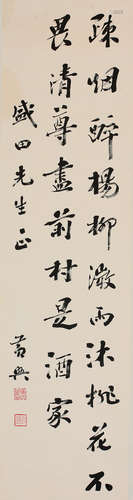 疎烟醉楊柳微雨沐桃花不
畏清尊盡前村是酒家
盛田先生正
黃興